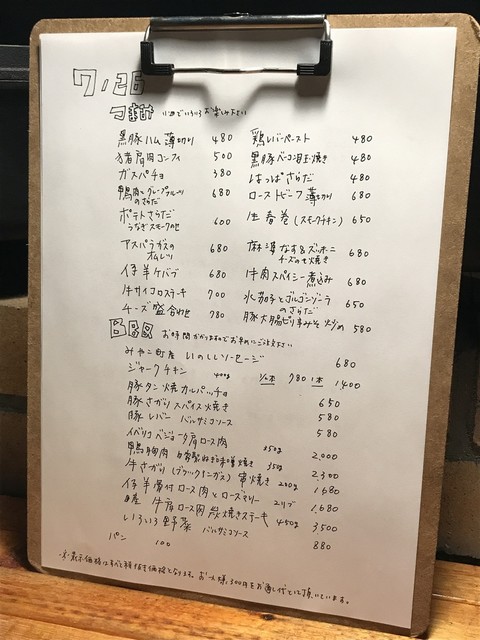 7/26
つまみ 小皿でいろいろお楽しみ下さい
黒豚ハム薄切り 480
猪肩肉コンフィ 500
ガスパチョ 380
鴨肉とグレープフルーツのさらだ 680
ポテトさらだ
うなぎスモークのせ 600
アスパラガスの
オムレツ 680
仔羊ケバブ 680
牛サイコロステーキ 700
チーズ盛合わせ 780
鶏レバーペースト 480
黒豚ベーコン目玉焼き 480
はっぱさらだ 480
ローストビーフ薄切り 680
生春巻(スモークチキン) 650
麻婆なす&ズッキーニ
チーズのせ焼き 680
牛肉スパイシー煮込み 680
水茄子とゴルゴンゾーラ
のさらだ 650
豚大腸ピリ辛みそ炒め 580
BBQ お時間がかかりますのでお早めにご注文下さい
みやこ町産 いのししソーセージ 680
ジャークチキン 400g 1/2本 780 1本 1,400
豚タン焼カルパッチョ 650
豚さがりスパイス焼き 580
豚レバー バルサミコソース 580
イベリコベジョータ肩ロース肉 350g 2,000
鴨胸肉 自家製ねぎ味噌焼き 350g 2,300
牛さがり(ブラックアンガス)串焼き 200g 1,680
仔羊骨付ロース肉とローズマリー 2リブ 1,680
国産 牛肩ロース肉炭焼きステーキ 450g 3,500
いろいろ野菜 バルサミコソース 880
パン 100
※表示価格はすべて税抜き価格となります。お一人様、300円をお通し代として頂いています。